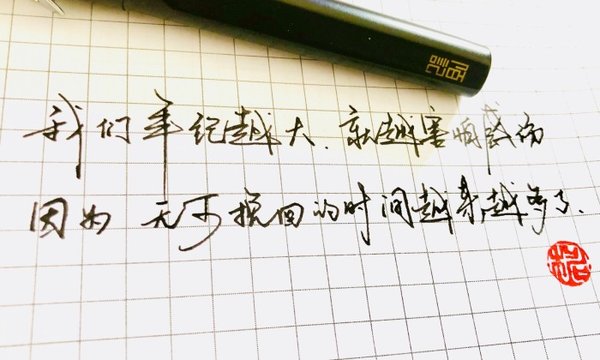 我们年纪越大、就越害怕感伤
因为无可挽回的时间越来越多了、